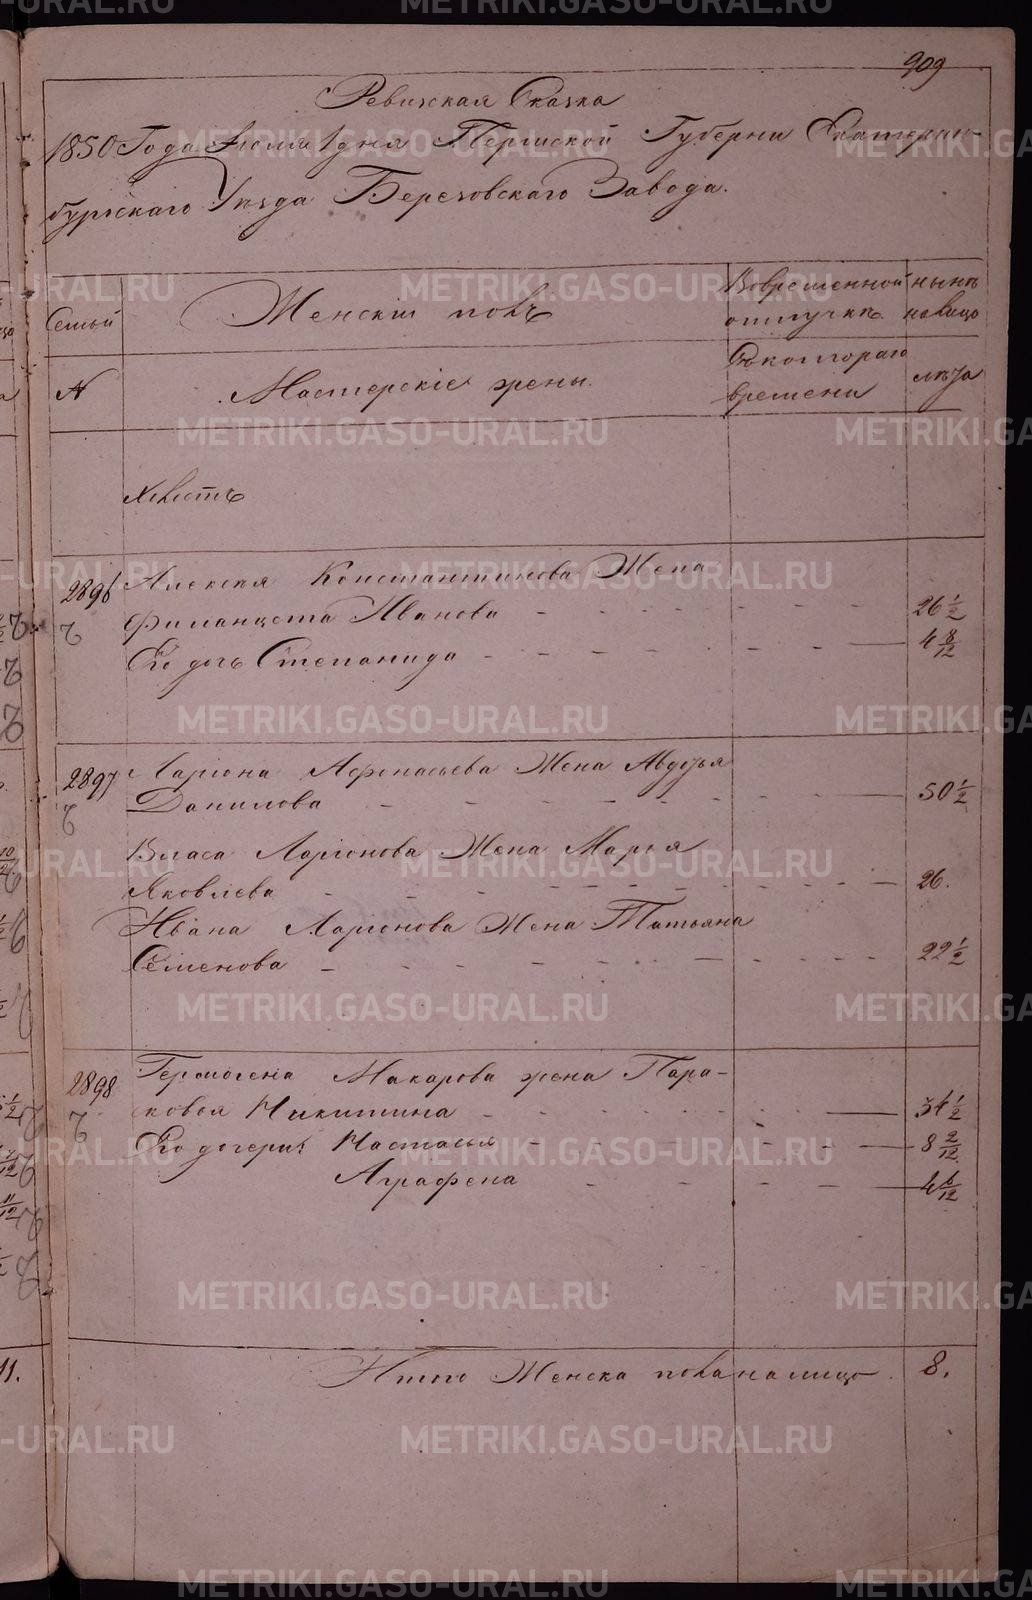 909
Ревизская Сказка
1850 Года Июля 1 дня Пермской Губернии Екатерин-
бургскаго Уезда Березовскаго Завода.
Семьй
Женскiй полъ
Вовременной
отлучкѣ
нынѣ
налицо
№
Мастерскiе жены.
Съкотораго
времени
лѣта
2896
Алексѣя Константинова Жена
Филанцета Иванова
26 1/2
Его дочь Степанида
4 8/12
2897
Ларiона Афонасьева Жена Авдотья
Данилова
50 1/2
Власа Ларiонова Жена Марья
Яковлева
26.
Ивана Ларiонова Жена Татьяна
Семенова
22 1/2
2898
Гермогена Макарова жена Пара-
ковья Никитина
34 1/2
Его дочери Настасья
8 2/12
Аграфена
4 6/12
Итого Женска пола налицо.
8.
11.
METRIKI.GASO-URAL.RU